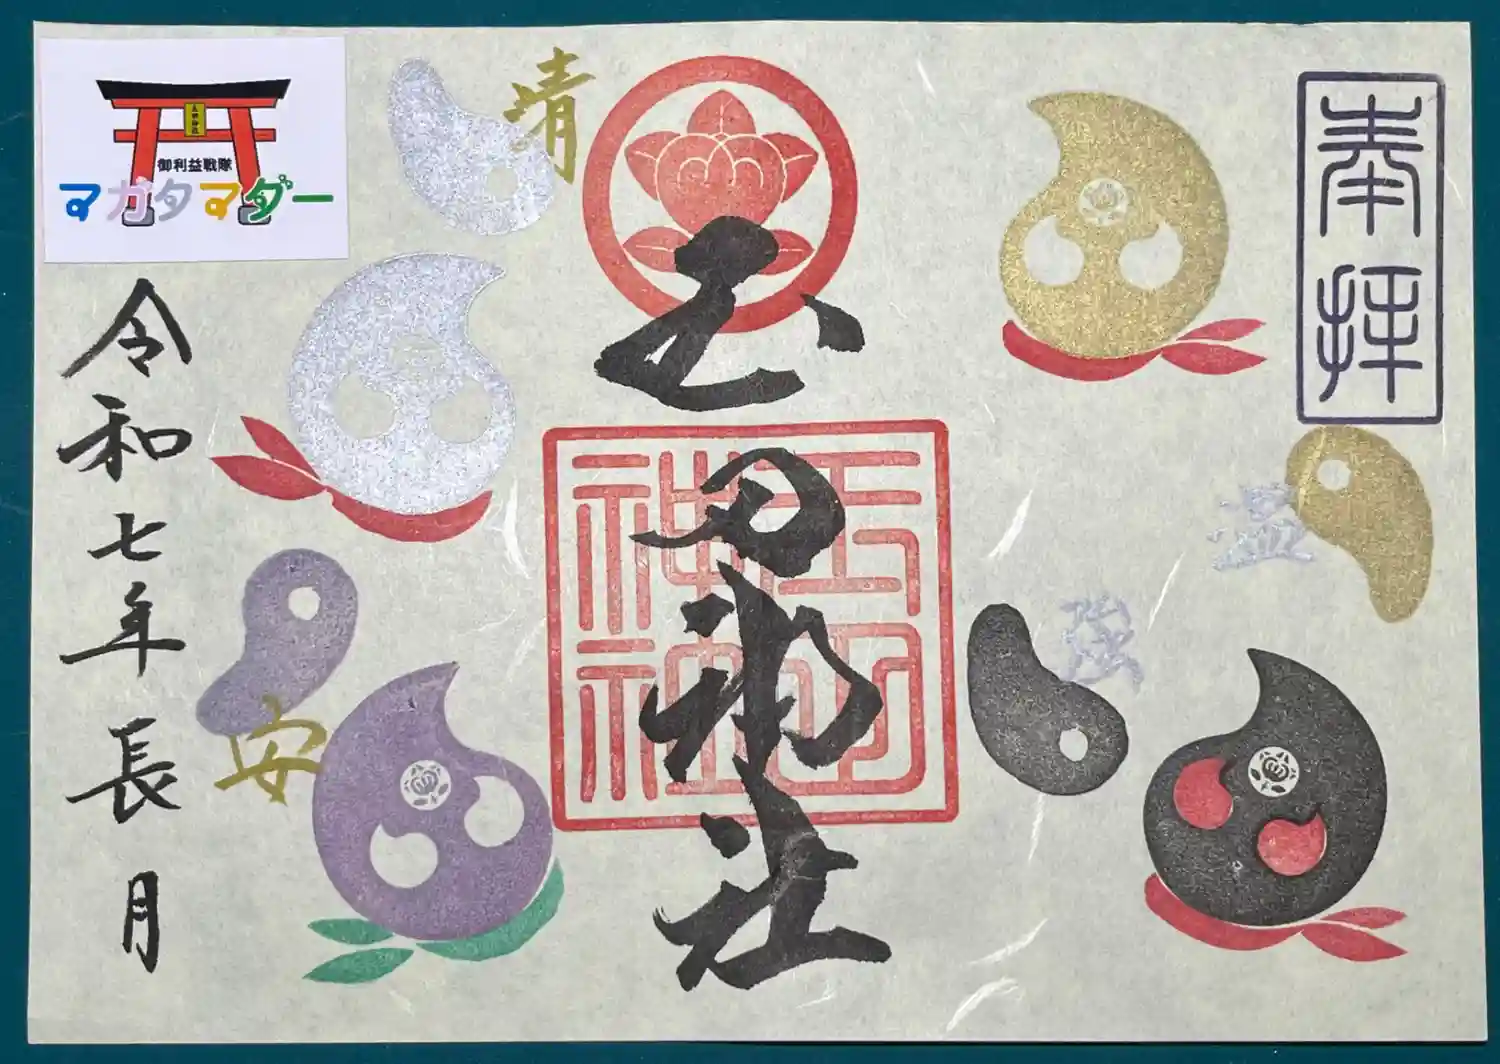 奉拝
玉田神社
玉田神社
益
強
安
御利益戦隊
マガタマダー
令和七年長月